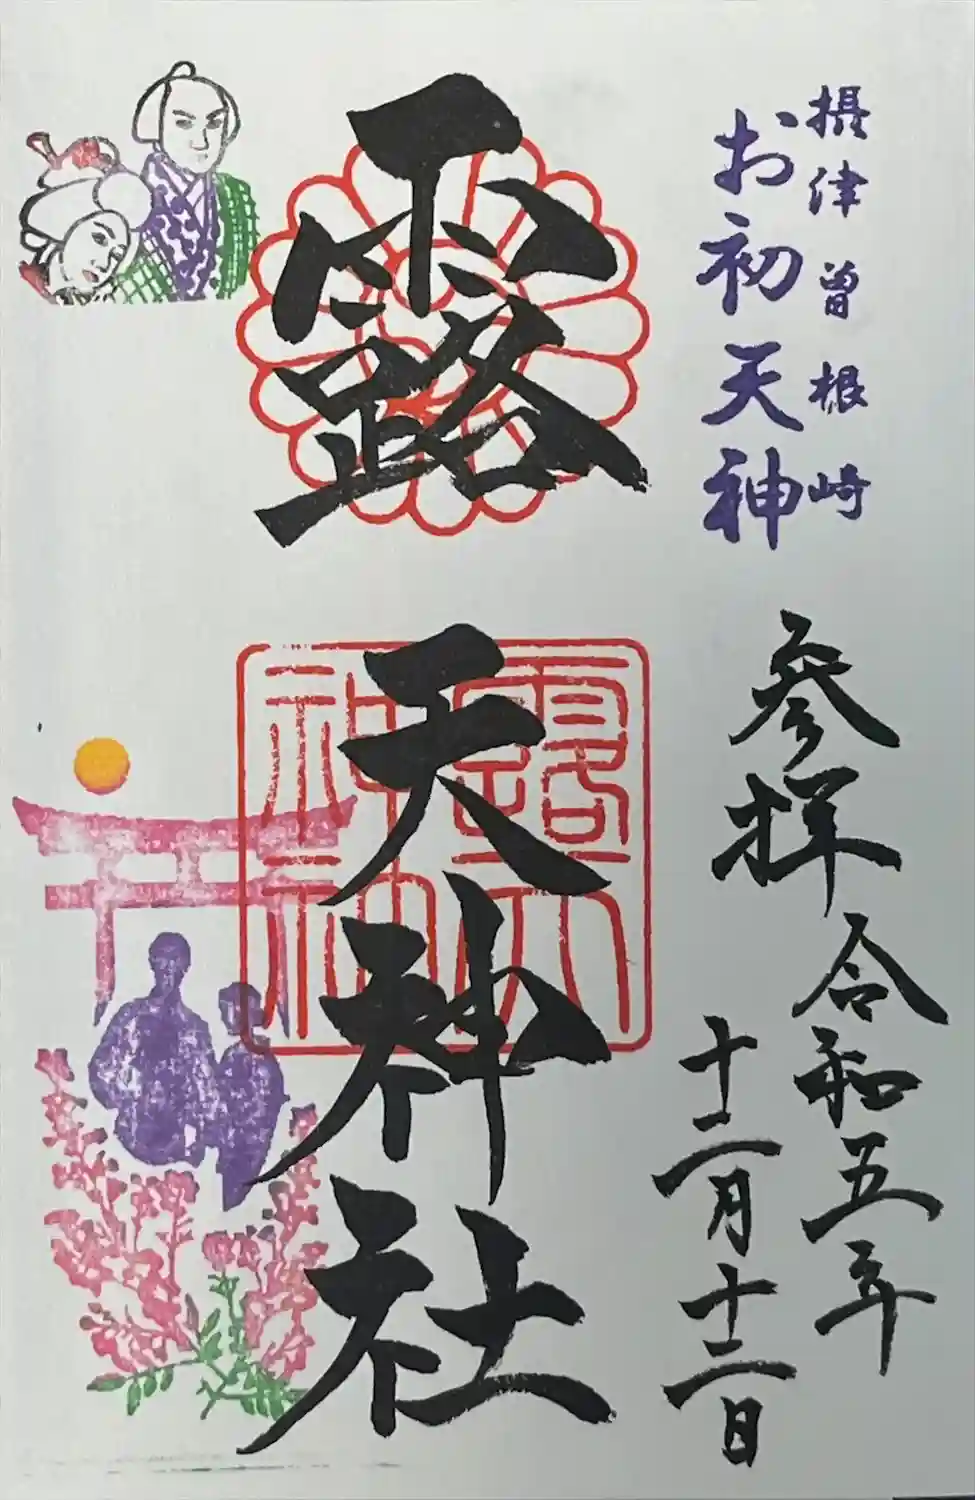 摂津曽根崎
お初天神
参拝
令和五年
十二月十二日
露
天神社
露天神社